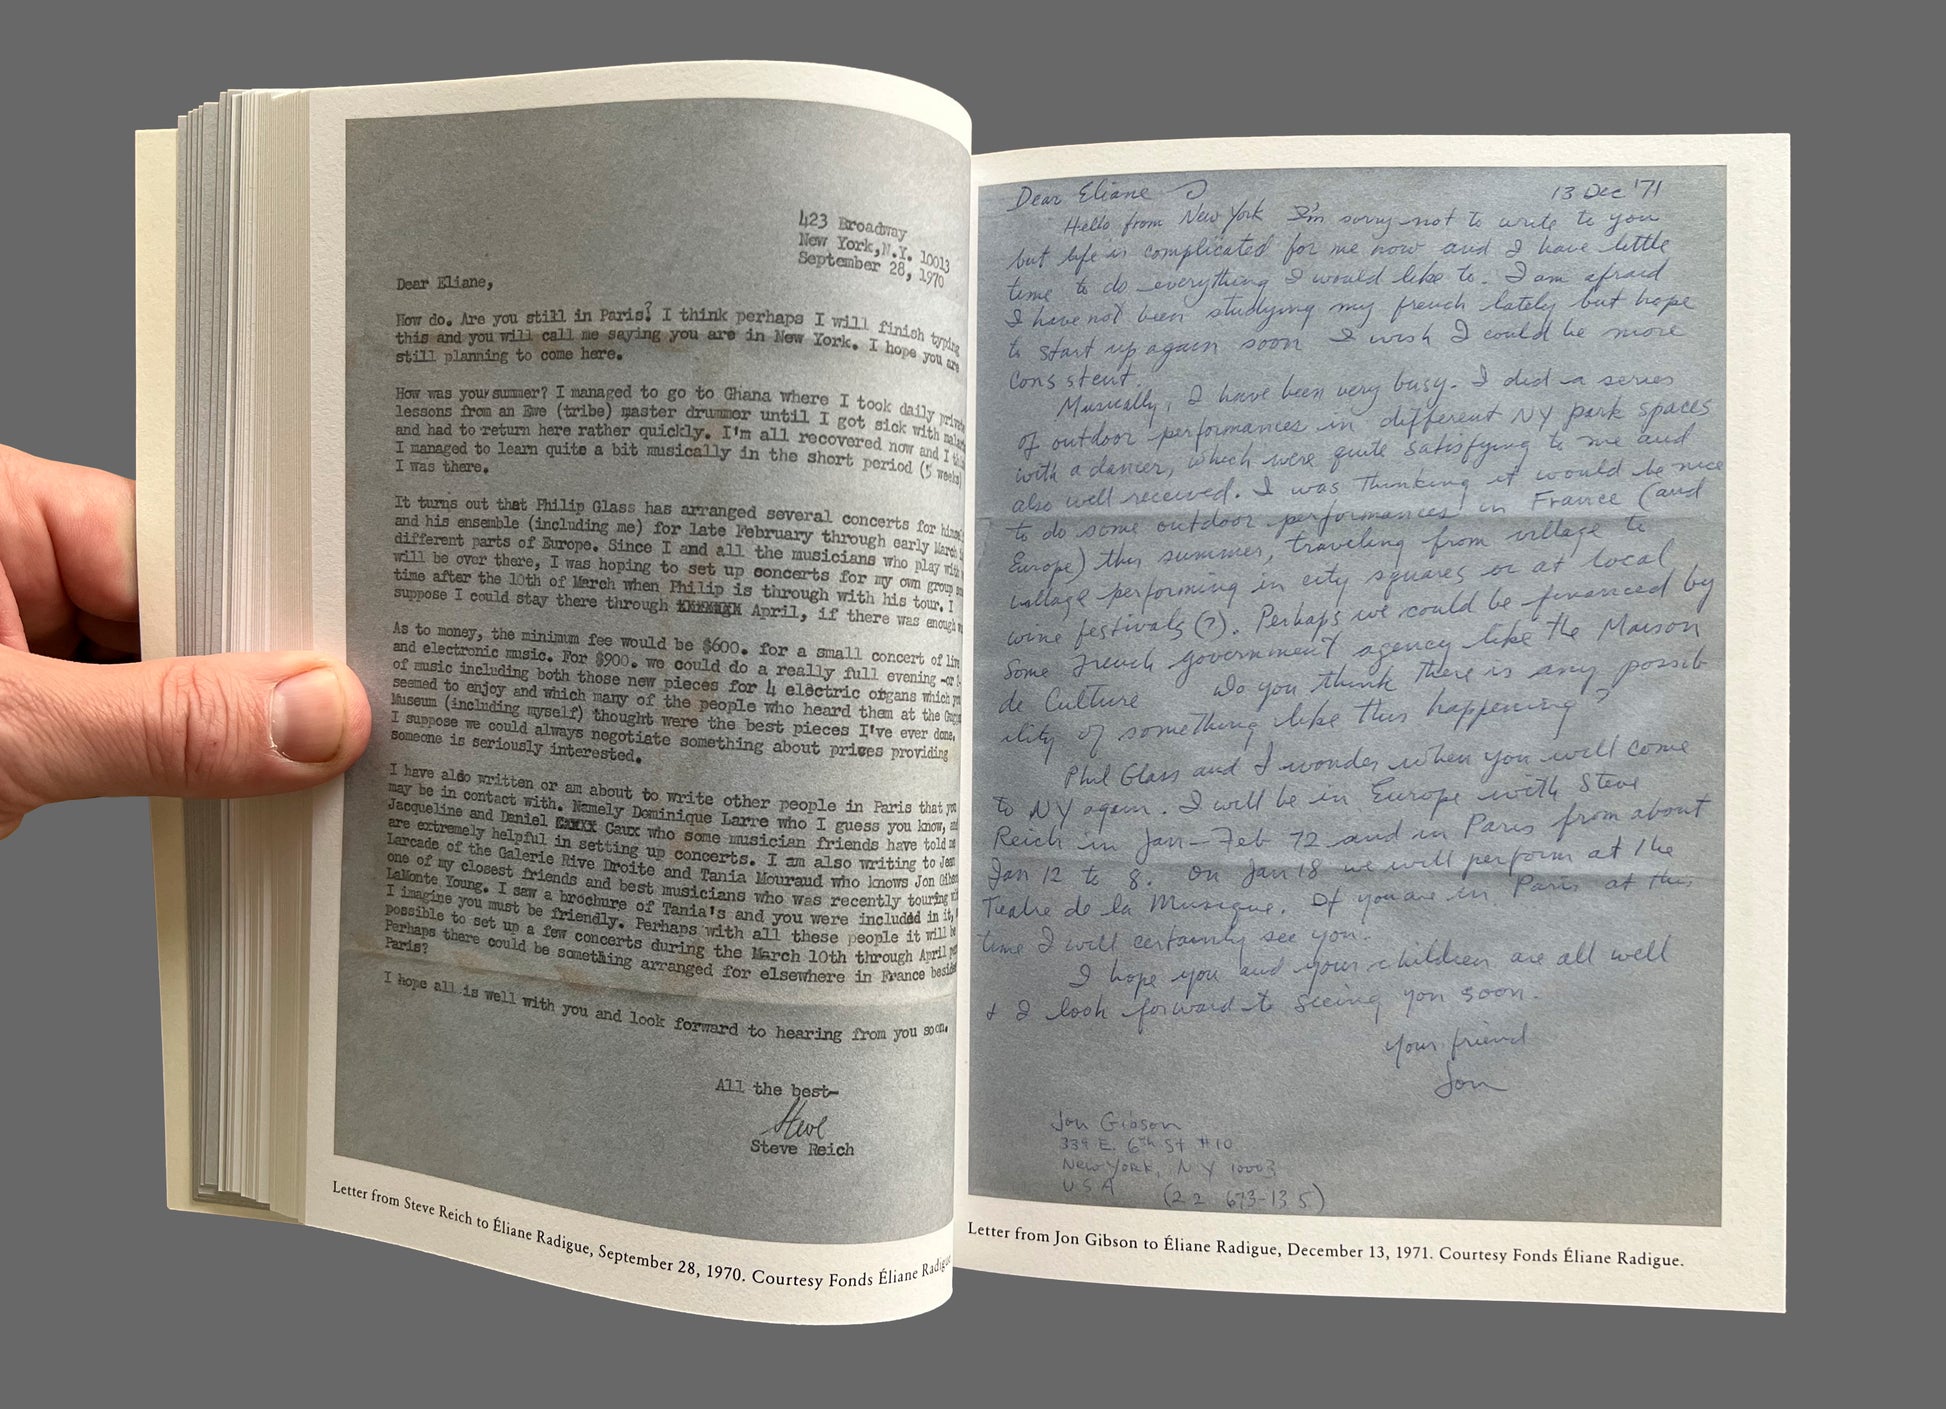 423 Broadway
New York,N.Y. 10013
September 28, 1970
Dear Eliane,
How do. Are you still in Paris? I think perhaps I will finish typing
this and you will call me saying you are in New York. I hope you are
still planning to come here.
How was your summer? I managed to go to Ghana where I took daily
lessons from an Ewe (tribe) master drummer until I got sick with
and had to return here rather quickly. I'm all recovered now and I
I managed to learn quite a bit musically in the short period (5 weeks)
I was there.
It turns out that Philip Glass has arranged several concerts for
and his ensemble (including me) for late February through early March
different parts of Europe. Since I and all the musicians who play with
will be over there, I was hoping to set up concerts for my own group
time after the 10th of March when Philip is through with his tour. I
suppose I could stay there through April, if there was enough
As to money, the minimum fee would be $600. for a small concert of
and electronic music. For $900. we could do a really full evening -or
of music including both those new pieces for 4 electric organs which
seemed to enjoy and which many of the people who heard them at the
Museum (including myself) thought were the best pieces I've ever done.
I suppose we could always negotiate something about prices providing
someone is seriously interested.
I have aldo written or am about to write other people in Paris that
may be in contact with. Namely Dominique Larre who I guess you know,
Jacqueline and Daniel Caux who some musician friends have told
are extremely helpful in setting up concerts. I am also writing to
Larcade of the Galerie Rive Droite and Tania Mouraud who knows Jon
one of my closest friends and best musicians who was recently touring
LaMonte Young. I saw a brochure of Tania's and you were included in it,
I imagine you must be friendly. Perhaps with all these people it will
possible to set up a few concerts during the March 10th through April
Perhaps there could be something arranged for elsewhere in France
Paris?
I hope all is well with you and look forward to hearing from you soon.
All the best-
Steve
Steve Reich
Letter from Steve Reich to Éliane Radigue, September 28, 1970. Courtesy Fonds Éliane
Dear Eliane
13 Dec '71
Hello from New York I'm sorry not to write to you
but life is complicated for me now and I have little
time to do everything I would like to. I am afraid
I have not been studying my french lately but hope
to start up again soon I wish I could be more
consistent.
Musically, I have been very busy. I did a series
of outdoor performances in different NY park spaces
with a dancer, which were quite satisfying to me and
also well received. I was thinking it would be nice
to do some outdoor performances in France (and
Europe) this summer, traveling from village to
village performing in city squares or at local
wine festivals (?). Perhaps we could be financed by
some French government agency like the Maison
de Culture Do you think there is any possib
ility of something like this happening?
Phil Glass and I wonder when you will come
to NY again. I will be in Europe with Steve
Reich in Jan-Feb 72 and in Paris from about
Jan 12 to 8. On Jan 18 we will perform at the
de la Musique. If you are in Paris at this
time I will certainly see you.
I hope you and your children are all well
+ I look forward to seeing you soon.
Your friend
Jon
Jon Gibson
339 E. 6th St #10
New York, N Y 10003
U S A
Letter from Jon Gibson to Éliane Radigue, December 13, 1971. Courtesy Fonds Éliane Radigue.